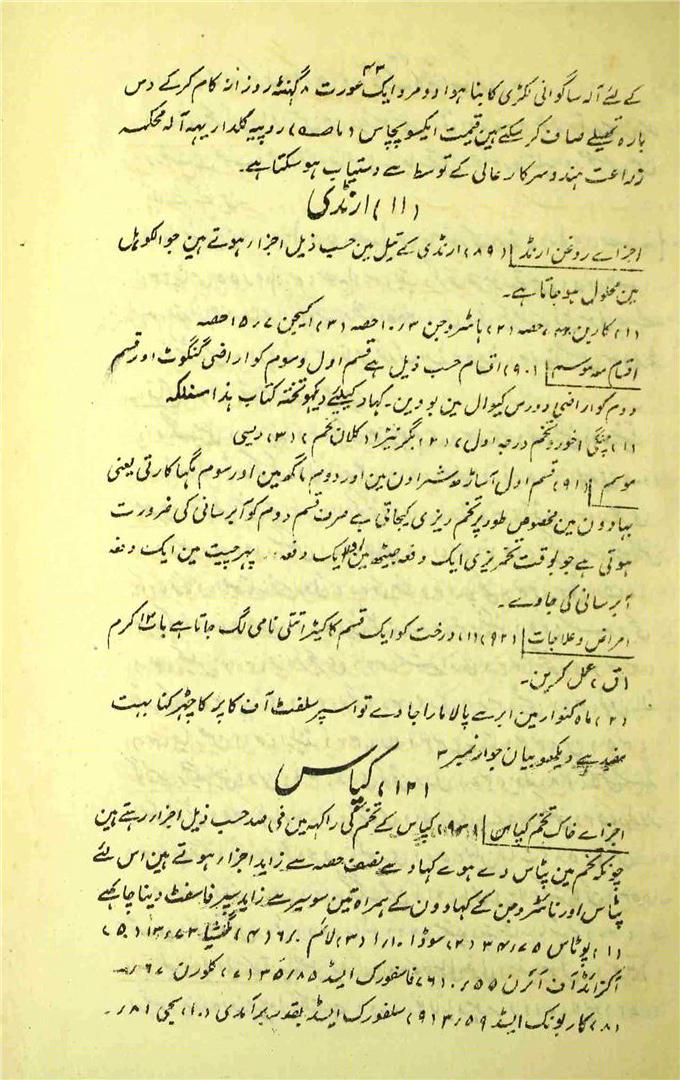 ۴۳
کے لئے آلہ ساگوانی لکڑی کا بنا ہوا دو مرد ایک عورت ۸ گہنٹہ روزانہ کام کرکے دس
بارہ تھیلے صاف کر سکتے ہین قیمت ایکسو پچاس روپیہ گلدار یہہ آلہ محکمہ
زراعت ہند و سرکار عالی کے توسط سے دستیاب ہو سکتا ہے۔
(۱۱) ارنڈی
اجزاے روغن ارنڈ (۸۹) ارنڈی کے تیل مین حسب ذیل اجزار ہوتے ہین جو الکوہل
مین محلول ہو جاتا ہے۔
(۱) کاربن حصہ (۲) ہائڈروجن ۱۰٫۳ حصہ (۳) اکیجن ۱۵٫۷ حصہ
اقسام معہ موسم (۹۰) اقسام حسب ذیل ہے قسم اول و سوم کو اراضی گنگوٹ اور قسم
دوم کو اراضی دورس کیوال مین بووین۔ کہاد کیلئے دیکہو تختہ کتاب ہذا منسلکہ
(۱) اخور و تخم درجہ اول (۲) (کلان تخم) (۳) دیسی
موسم (۹۱) قسم اول آساڑھ شراون مین اور دوم ماگھ مین اور سوم مگہا کارتی یعنی
بہادون مین مخصوص طور پر تخم ریزی کیجاتی ہے صرف قسم دوم کو آبرسانی کی ضرورت
ہوتی ہے جو بوقت تخمریزی ایک دفعہ جیٹھ مین اور ایک دفعہ پہر چیت مین ایک دفعہ
آبرسانی کی جاوے۔
امراض و علاجات (۹۲) (۱) درخت کو ایک قسم کا کیڑا تتلی نامی لگ جاتا ہے باب ۱۳ کرم
(ق) عمل کرین۔
(۲) ماہ کنوار مین ابر سے پالا مارا جاوے تو اسپر سلفٹ آف کاپر کا چہڑکنا بہت
مفید ہے دیکہو بیان جوار نمبر ۳
(۱۲) کپاس
اجزاے خاک تخم کپاس (۹۳) کپاس کے تخم کی راکہہ مین فی صد حسب ذیل اجزار رہتے ہین
چونکہ تخم مین پٹاس دے ہوے کہاد سے نصف حصہ سے زاید اجزار ہوتے ہین اس لئے
پٹاس اور نائٹروجن کے کہادون کے ہمراہ تین سو سیر سے زاید سپر فاسفٹ دینا چاہئے
(۱) پوٹاس ۳۴٫۷۵ (۲) سوڈا ۱٫۱۰ (۳) لائم ۶٫۰ (۴) مگنیشیا ۱۳٫۷۳ (۵)
آکزائڈ آف آئرن ۰٫۵۵ (۶) فاسفورک ایسڈ ۳۵٫۸۵ (۷) کلورن ۰٫۶۷
(۸) کاربونک ایسڈ ۳٫۵۹ (۹) سلفورک ایسڈ بقدر برآمدی (۱۰) ۰٫۸۱۔